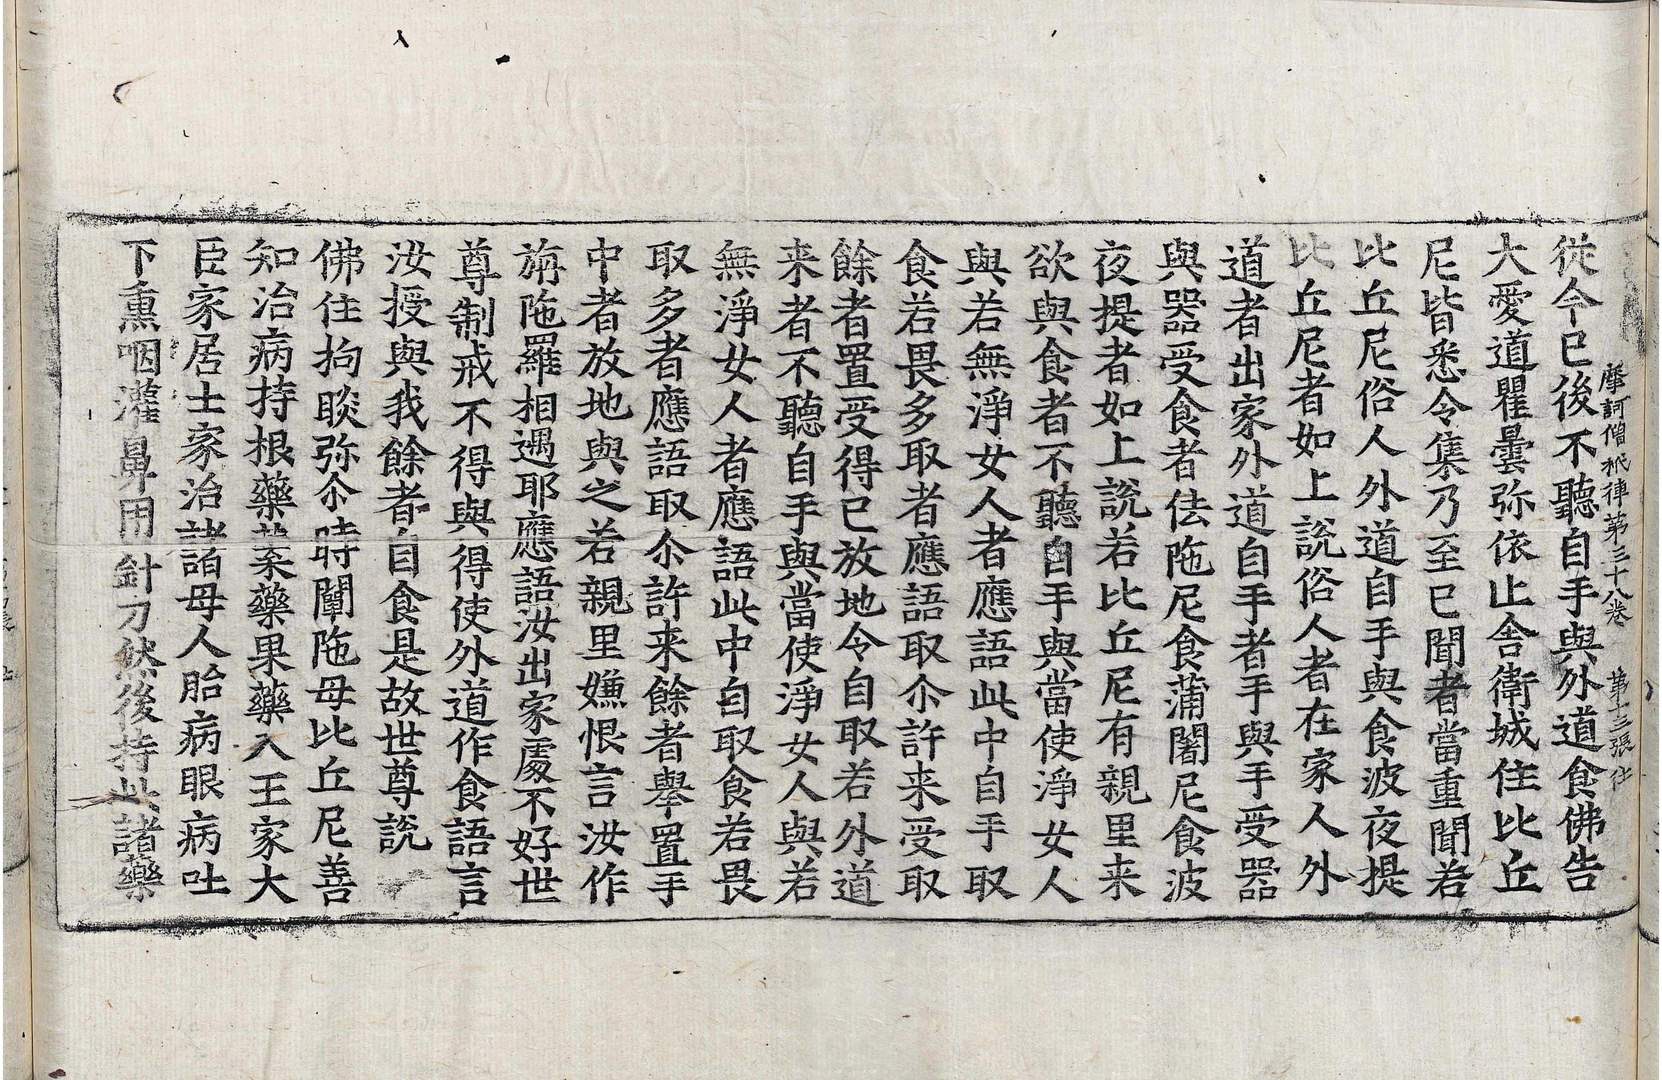 摩訶僧祇律第三十八卷　第十三張　仕
從今已後不聽自手與外道食佛告
大愛道瞿曇弥依止舍衛城住比丘
尼皆悉令集乃至已聞者當重聞若
比丘尼俗人外道自手與食波夜提
比丘尼者如上說俗人者在家人外
道者出家外道自手者手與手受器
與器受食者佉陁尼食蒲闍尼食波
夜提者如上說若比丘尼有親里来
欲與食者不聽自手與當使淨女人
與若無淨女人者應語此中自手取
食若畏多取者應語取尒許来受取
餘者置受得已放地令自取若外道
来者不聽自手與當使淨女人與若
無淨女人者應語此中自取食若畏
取多者應語取尒許来餘者舉置手
中者放地與之若親里嫌恨言汝作
旃陁羅相遇耶應語汝出家處不好世
尊制戒不得與得使外道作食語言
汝授與我餘者自食是故世尊說
佛住拘睒弥尒時闡陁母比丘尼善
知治病持根藥葉藥果藥入王家大
臣家居士家治諸母人胎病眼病吐
下熏咽灌鼻用針刀然後持此諸藥